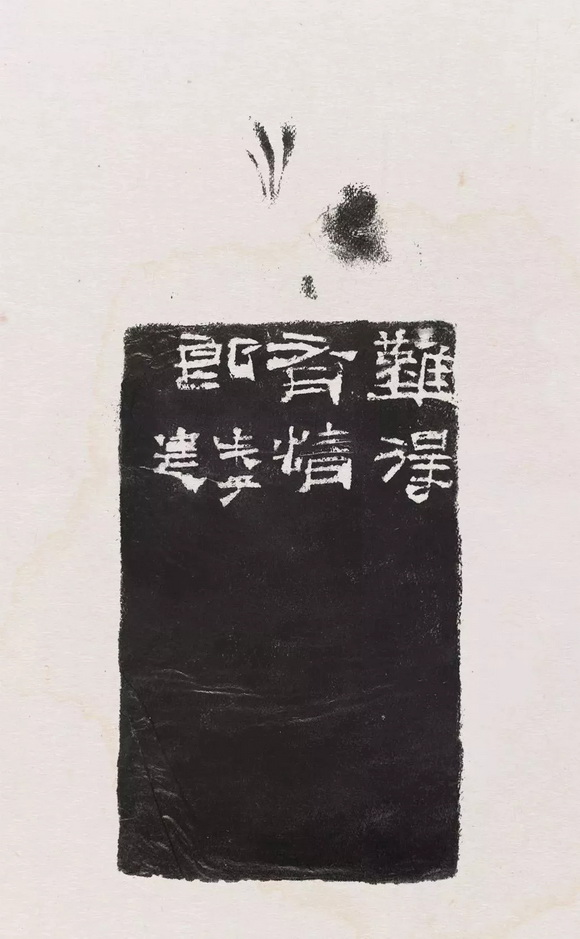 難得
有情
郎
造